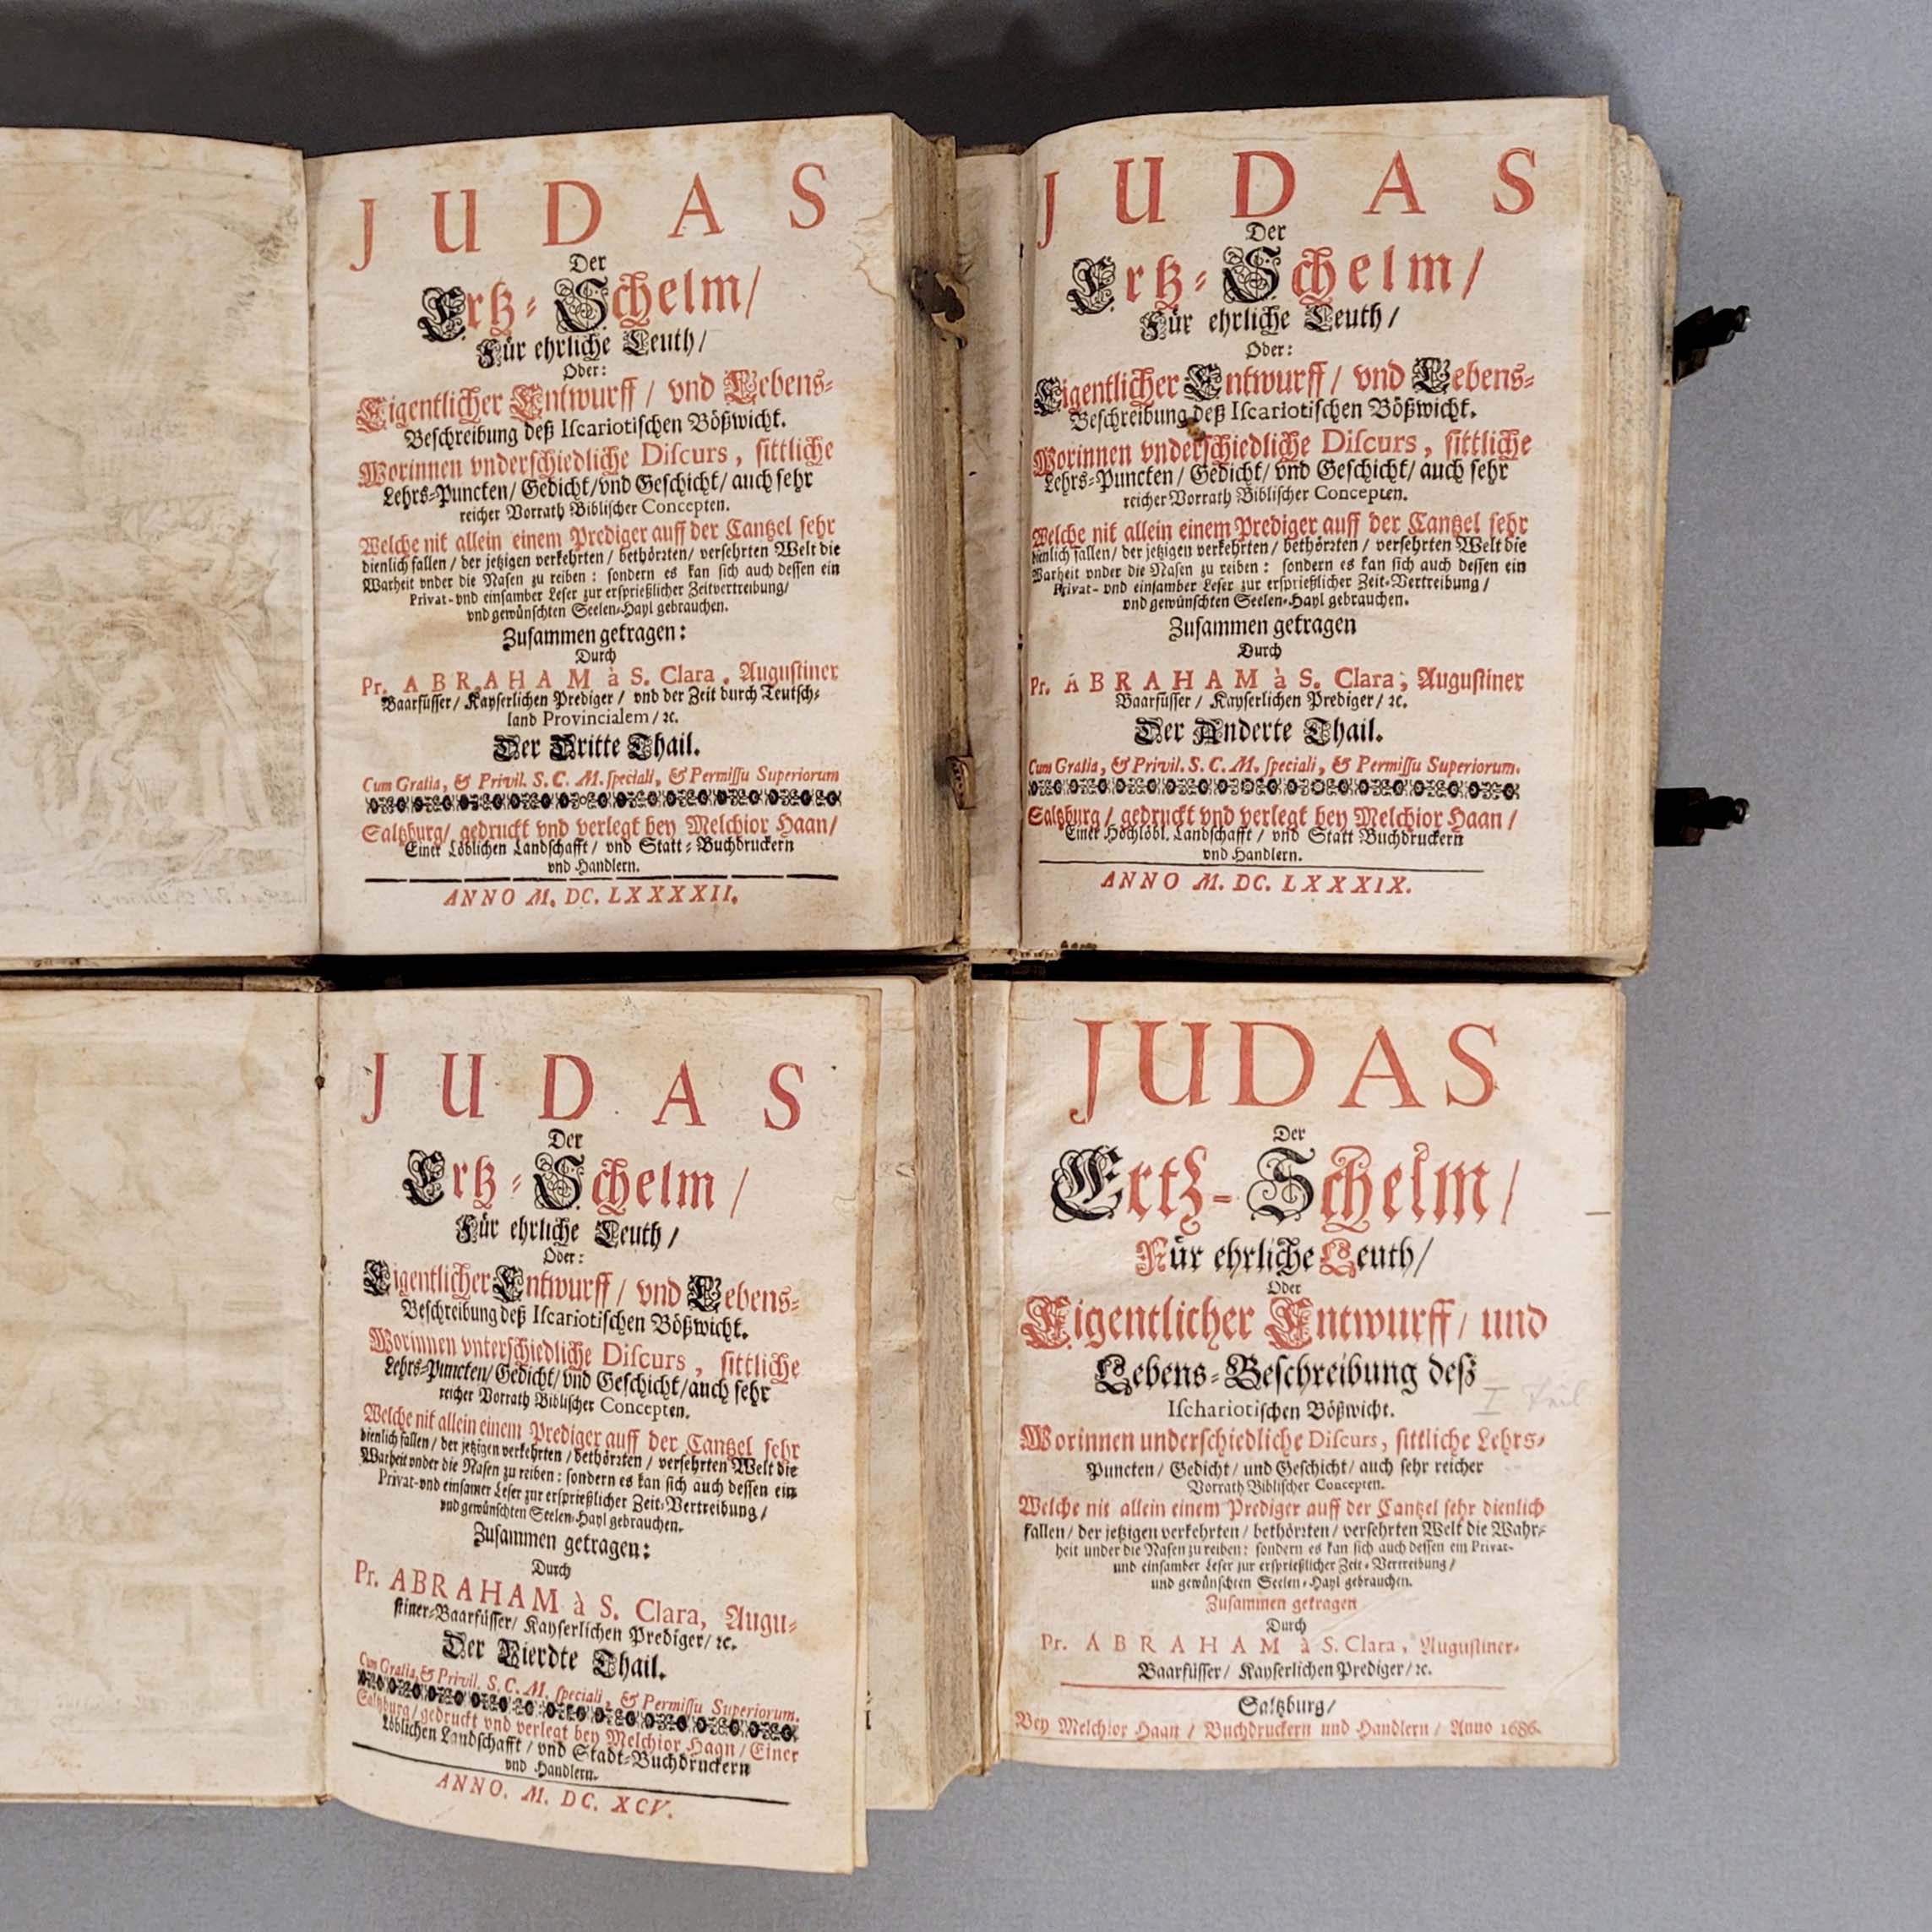 JUDAS
Der
Ertz-Schelm/
Für ehrliche Leuth/
Oder:
Eigentlicher Entwurff/ vnd Lebens-
Beschreibung deß Iscariotischen Bößwicht.
Worinnen vnderschiedliche Discurs, sittliche
Lehrs-Puncten/ Gedicht/ vnd Geschicht/ auch sehr
reicher Vorrath Biblischer Concepten.
Welche nit allein einem Prediger auff der Cantzel sehr
dienlich fallen/ der jetzigen verkehrten/ bethörzten/ versehrten Welt die
Warheit vnder die Nasen zu reiben: sondern es kan sich auch dessen ein
Privat- vnd einsamber Leser zur ersprießlicher Zeitvertreibung/
vnd gewünschten Seelen-Hayl gebrauchen.
Zusammen getragen:
Durch
Pr. ABRAHAM à S. Clara, Augustiner
Baarfüsser/ Kayserlichen Prediger/ vnd der Zeit durch Teutsch-
land Provincialem/ ꝛc.
Der Dritte Thail.
Cum Gratia, & Privil. S. C. M. speciali, & Permissu Superiorum
Saltzburg/ gedruckt vnd verlegt bey Melchior Haan/
Einer Löblichen Landschafft/ vnd Statt-Buchdruckern
vnd Handlern.
ANNO M. DC. LXXXXII.
JUDAS
Der
Ertz-Schelm/
Für ehrliche Leuth/
Oder:
Eigentlicher Entwurff/ vnd Lebens-
Beschreibung deß Iscariotischen Bößwicht.
Worinnen vnderschiedliche Discurs, sittliche
Lehrs-Puncten/ Gedicht/ vnd Geschicht/ auch sehr
reicher Vorrath Biblischer Concepten.
Welche nit allein einem Prediger auff der Cantzel sehr
dienlich fallen/ der jetzigen verkehrten/ bethörzten/ versehrten Welt die
Warheit vnder die Nasen zu reiben: sondern es kan sich auch dessen ein
Privat- vnd einsamber Leser zur ersprießlicher Zeit-Vertreibung/
vnd gewünschten Seelen-Hayl gebrauchen.
Zusammen getragen
Durch
Pr. ABRAHAM à S. Clara, Augustiner
Baarfüsser/ Kayserlichen Prediger/ ꝛc.
Der Anderte Thail.
Cum Gratia, & Privil. S. C. M. speciali, & Permissu Superiorum.
Saltzburg/ gedruckt vnd verlegt bey Melchior Haan/
Einer Hochlöbl. Landschafft/ vnd Statt Buchdruckern
vnd Handlern.
ANNO M. DC. LXXXIX.
JUDAS
Der
Ertz-Schelm/
Für ehrliche Leuth/
Oder:
Eigentlicher Entwurff/ vnd Lebens-
Beschreibung deß Iscariotischen Bößwicht.
Worinnen vnterschiedliche Discurs, sittliche
Lehrs-Puncten/ Gedicht/ vnd Geschicht/ auch sehr
reicher Vorrath Biblischer Concepten.
Welche nit allein einem Prediger auff der Cantzel sehr
dienlich fallen/ der jetzigen verkehrten/ bethörzten/ versehrten Welt die
Warheit vnder die Nasen zu reiben: sondern es kan sich auch dessen ein
Privat-vnd einsamer Leser zur ersprießlicher Zeit-Vertreibung/
vnd gewünschten Seelen-Hayl gebrauchen.
Zusammen getragen:
Durch
Pr. ABRAHAM à S. Clara, Augu-
stiner-Baarfüsser/ Kayserlichen Prediger/ ꝛc.
Der Vierdte Thail.
Cum Gratia, & Privil. S. C. M. speciali, & Permissu Superiorum.
Saltzburg/ gedruckt vnd verlegt bey Melchior Haan/ Einer
Löblichen Landschafft/ vnd Stadt-Buchdruckern
vnd Handlern.
ANNO. M. DC. XCV.
JUDAS
Der
Ertz-Schelm/
Für ehrliche Leuth/
Oder
Eigentlicher Entwurff/ und
Lebens-Beschreibung deß
Ischariotischen Bößwicht.
I Theil
Worinnen underschiedliche Discurs, sittliche Lehrs-
Puncten/ Gedicht/ und Geschicht/ auch sehr reicher
Vorrath Biblischer Concepten.
Welche nit allein einem Prediger auff der Cantzel sehr dienlich
fallen/ der jetzigen verkehrten/ bethörzten/ versehrten Welt die Wahr-
heit under die Nasen zu reiben: sondern es kan sich auch dessen ein Privat-
und einsamber Leser zur ersprießlicher Zeit-Vertreibung/
und gewünschten Seelen-Hayl gebrauchen.
Zusammen getragen
Durch
Pr. ABRAHAM à S. Clara, Augustiner-
Baarfüsser/ Kayserlichen Prediger/ ꝛc.
Saltzburg/
Bey Melchior Haan/ Buchdruckern und Handlern/ Anno 1686.